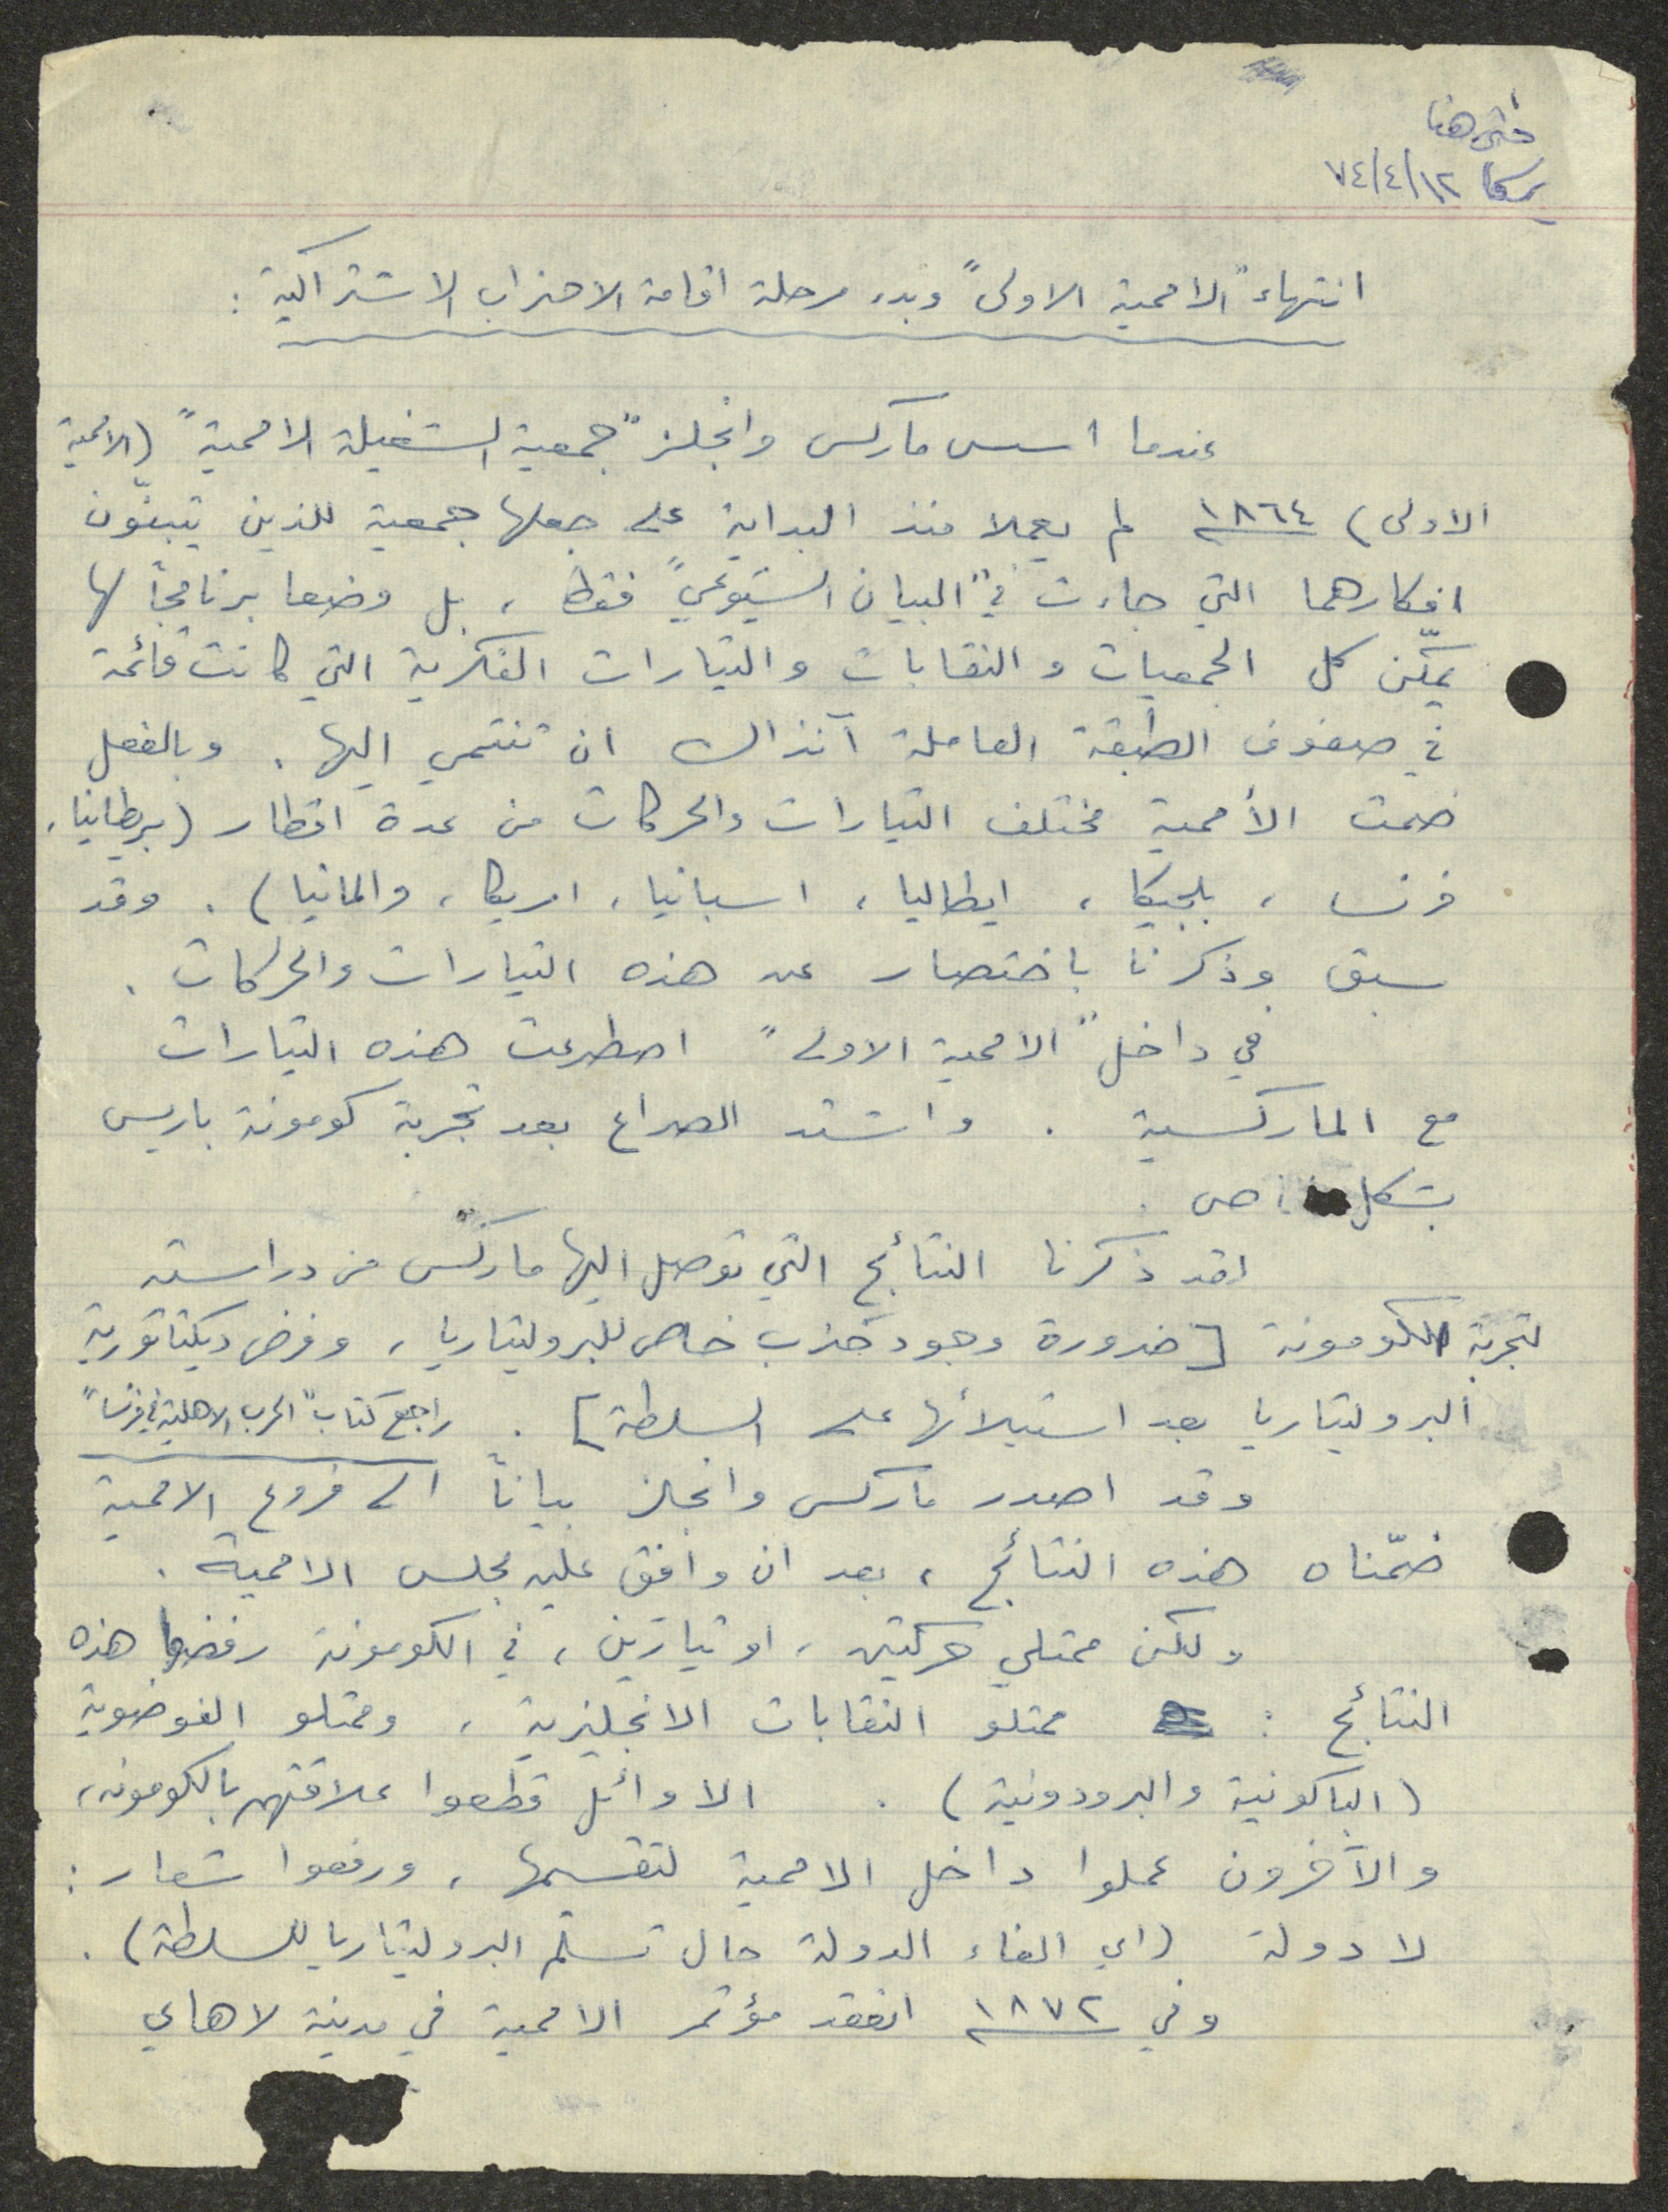 حتى هنا
٧٤/٤/١٢
انتهاء "الاممية الاولى" وبدء مرحلة اقامة الاحزاب الاشتراكية :
عندما اسس ماركس وانجلز "جمعية الشغيلة الاممية" (الاممية
الاولى) ١٨٦٤ لم يعملا منذ البداية على جعلها جمعية للذين يتبنّون
افكارهما التي جاءت في "البيان الشيوعي" فقط ، بل وضعا برنامجاً لها
يمكّن كل الجمعيات والنقابات والتيارات الفكرية التي كانت قائمة
في صفوف الطبقة العاملة آنذاك ان تنتمي اليها . وبالفعل
ضمت الأممية مختلف التيارات والحركات من عدة اقطار (بريطانيا ،
فرنسا ، بلجيكا ، ايطاليا ، اسبانيا ، امريكا ، والمانيا) . وقد
سبق وذكرنا باختصار عن هذه التيارات والحركات .
في داخل "الاممية الاولى" اصطرعت هذه التيارات
مع الماركسية . واشتد الصراع بعد تجربة كومونة باريس
بشكل خاص .
لقد ذكرنا النتائج التي توصل اليها ماركس من دراسته
لتجربة الكومونة [ضرورة وجود حزب خاص للبروليتاريا ، وفرض ديكتاتورية
البروليتاريا بعد استيلائها على السلطة] . راجع كتاب "الحرب الاهلية في فرنسا"
وقد اصدر ماركس وانجلز بياناً الى فروع الاممية
ضمّناه هذه النتائج ، بعد ان وافق عليه مجلس الاممية .
ولكن ممثلي حركتين ، او تيارين ، في الكومونة رفضوا هذه
النتائج : ممثلو النقابات الانجليزية ، وممثلو الفوضوية
(الباكونية والبرودونية) . الاوائل قطعوا علاقتهم بالكومونه ،
والآخرون عملوا داخل الاممية لتقسيمها ، ورفعوا شعار :
لا دولة (اي الغاء الدولة حال تسلم البروليتاريا للسلطة) .
وفي ١٨٧٢ انعقد مؤتمر الاممية في مدينة لاهاي